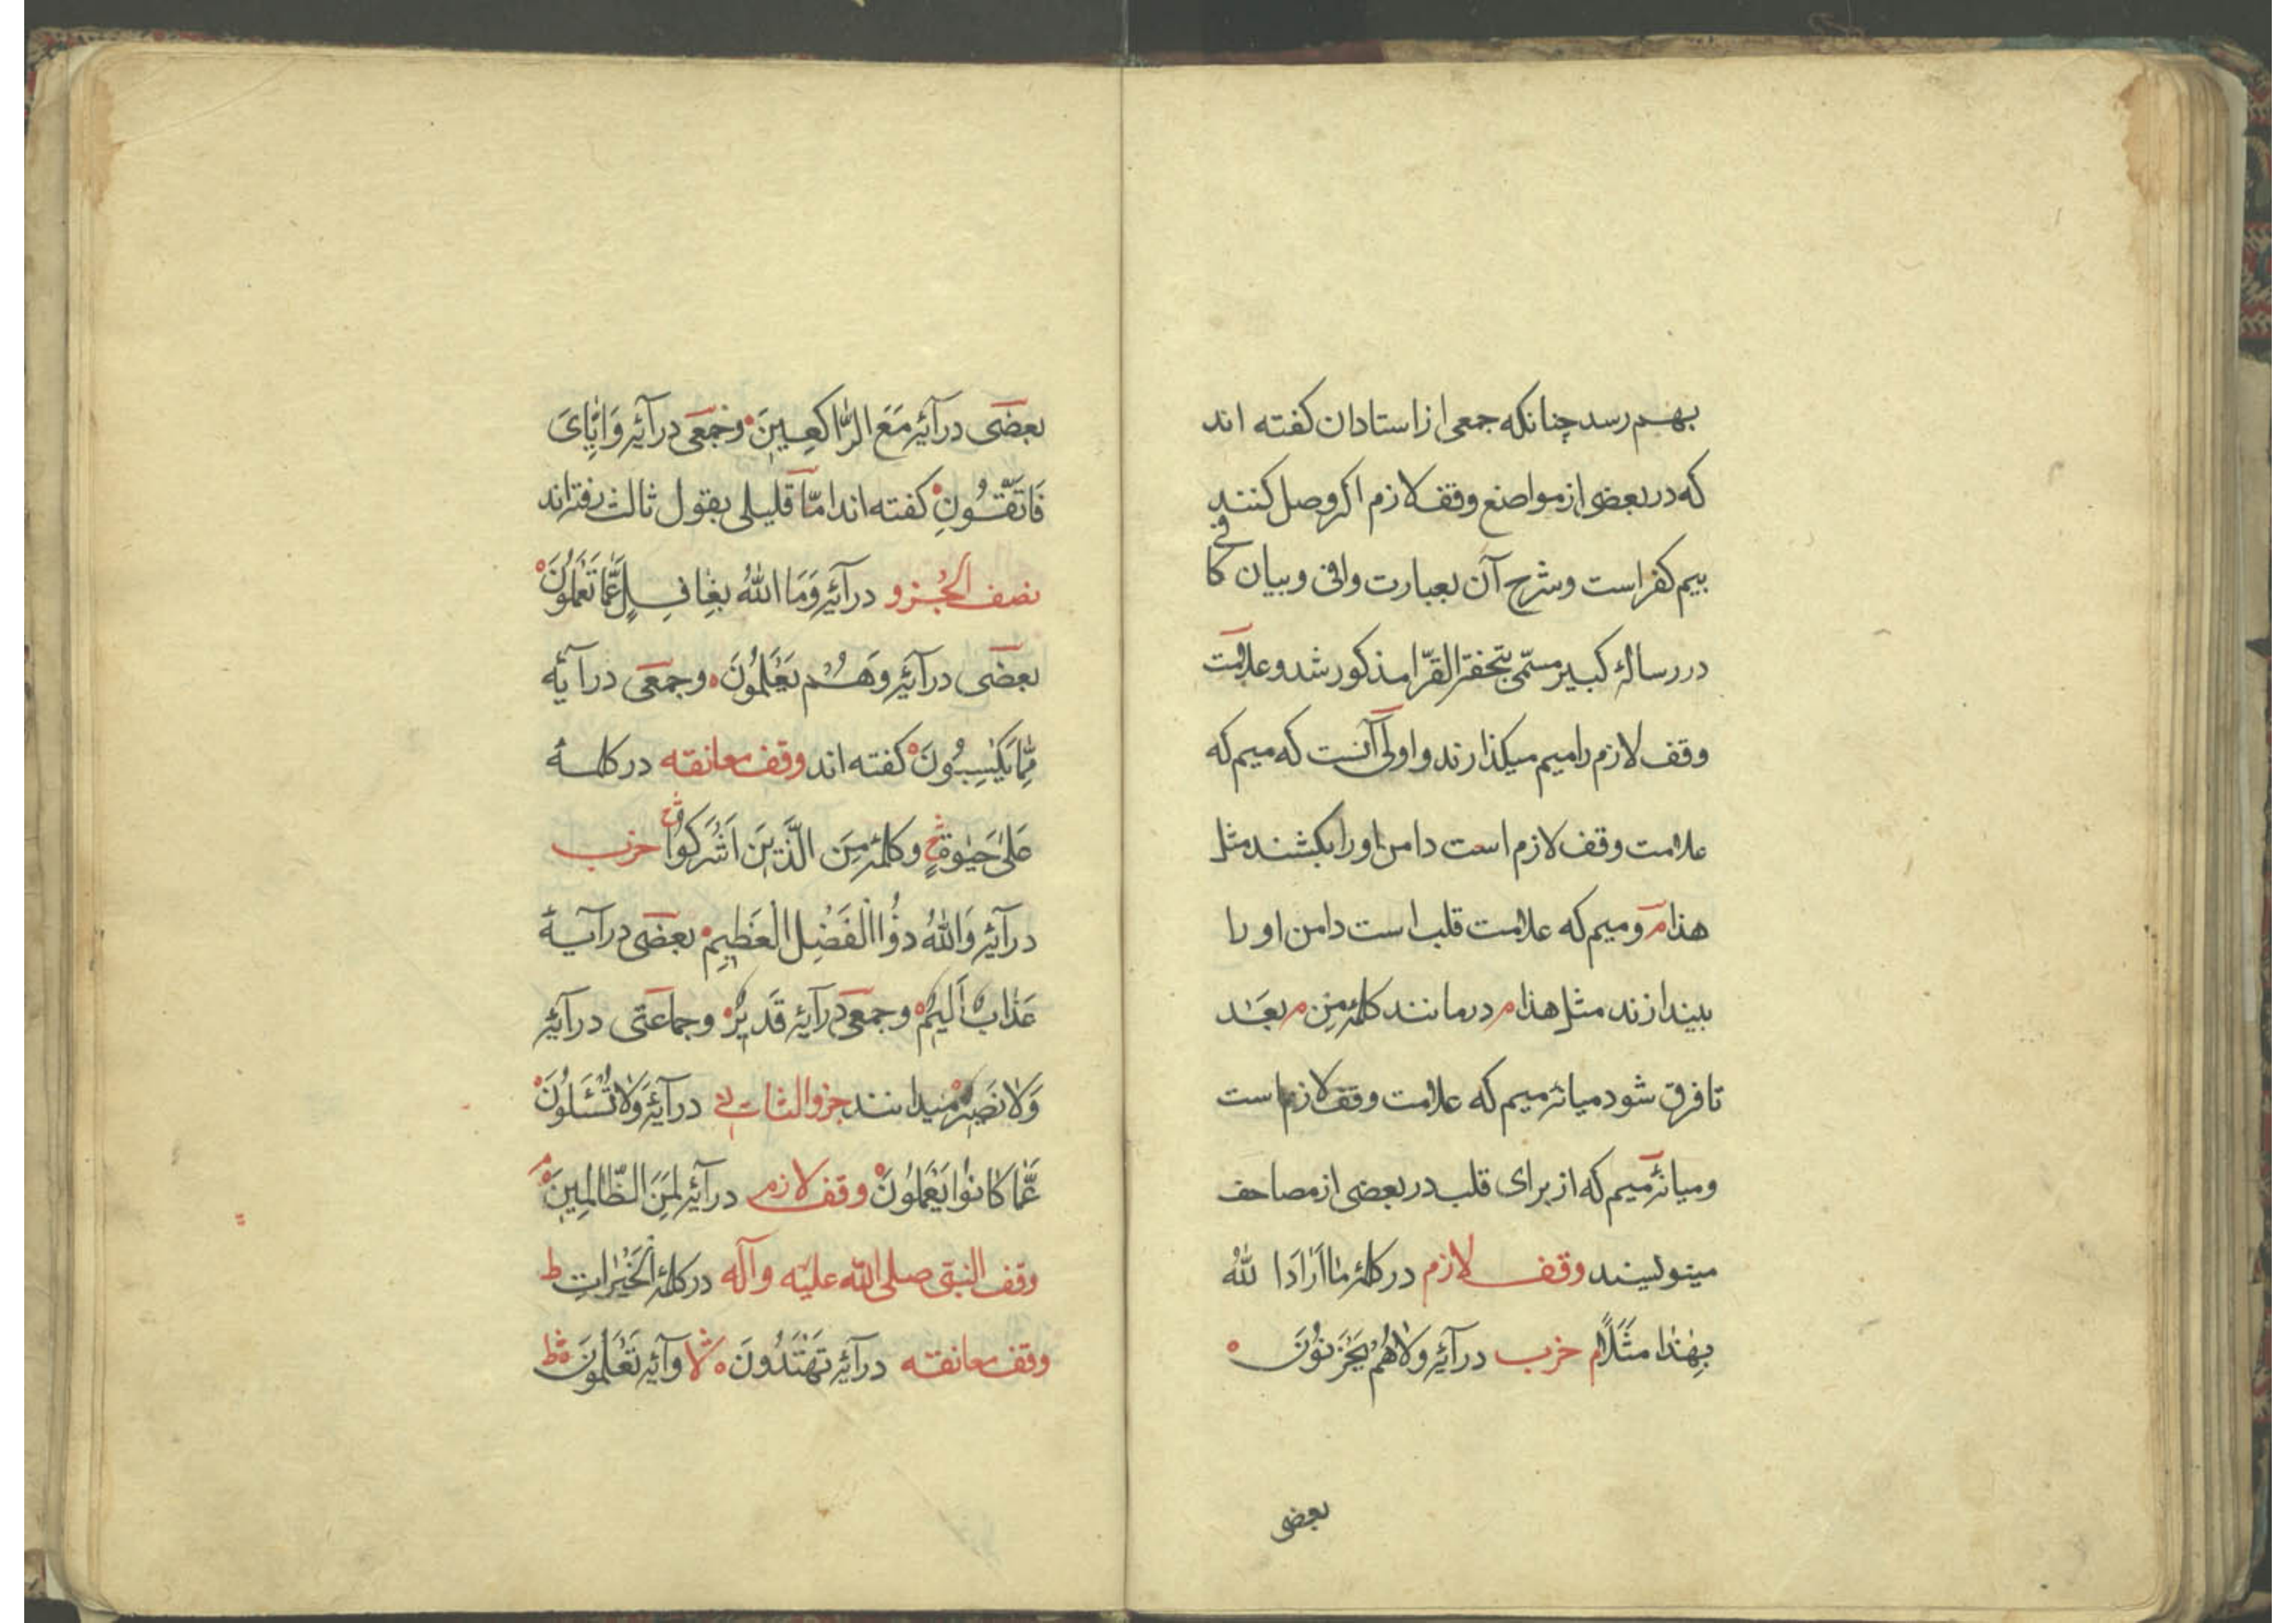 بهم رسد چنانکه جمعی از استادان کفته اند
که در بعضی از مواضع وقف لازم اکر وصل کنند
بیم کفر است وشرح آن بعبارت وافی وبیان کافی
در رسالهٔ کبیر مسمّی بتحفة القرّا مذکور شد وعلامت
وقف لازم را میم میکذارند واولی آنست که میم که
علامت وقف لازم است دامن او را بکشند مثل
هذا م ومیم که علامت قلب است دامن او را
بیندازند مثل هذا م در مانند کلمهٔ مِنْ م بَعْد
تا فرق شود میانهٔ میم که علامت وقف لازم است
ومیانهٔ میم که از برای قلب در بعضی از مصاحف
مینویسند وقف لازم در کلمهٔ مٰا اَرٰادَ اللّٰهُ
بِهٰذٰا مَثَلًا م حزب در آیهٔ وَلٰا هُمْ یَحْزَنُونَ ه
بعضی
بعضی در آیهٔ مَعَ الرّٰاکِعِینَ ه وجمعی در آیهٔ وَاِیّٰایَ
فَاتَّقُونِ ه کفته اند امّا قلیلی بقول ثالث رفته اند
نصف الجزو در آیهٔ وَمَا اللّٰهُ بِغٰافِلٍ عَمّٰا تَعْمَلُونَ ه
بعضی در آیهٔ وَهُمْ یَعْلَمُونَ ه وجمعی در آیهٔ
مِمّٰا یَکْسِبُونَ ه کفته اند وقف معانقه در کلمهٔ
عَلیٰ حَیٰوةٍ وکلمهٔ مِنَ الَّذِینَ اَشْرَکُوا حزب
در آیهٔ وَاللّٰهُ ذُوا الْفَضْلِ الْعَظِیمِ ه بعضی در آیهٔ
عَذٰابٌ اَلِیمٌ ه وجمعی در آیهٔ قَدِیرٌ ه وجماعتی در آیهٔ
وَلٰا نَصِیرٍ ه میدانند جزو الثانی در آیهٔ وَلٰا تُسْئَلُونَ ه
عَمّٰا کٰانُوا یَعْمَلُونَ ه وقف لازم در آیهٔ لَمِنَ الظّٰالِمِینَ ه م
وقف النبی صلی اللّه علیه وآله در کلمهٔ الْخَیْرٰاتِ ط
وقف معانقه در آیهٔ تَهْتَدُونَ ه لا وآیهٔ تَعْلَمُونَ ه ط